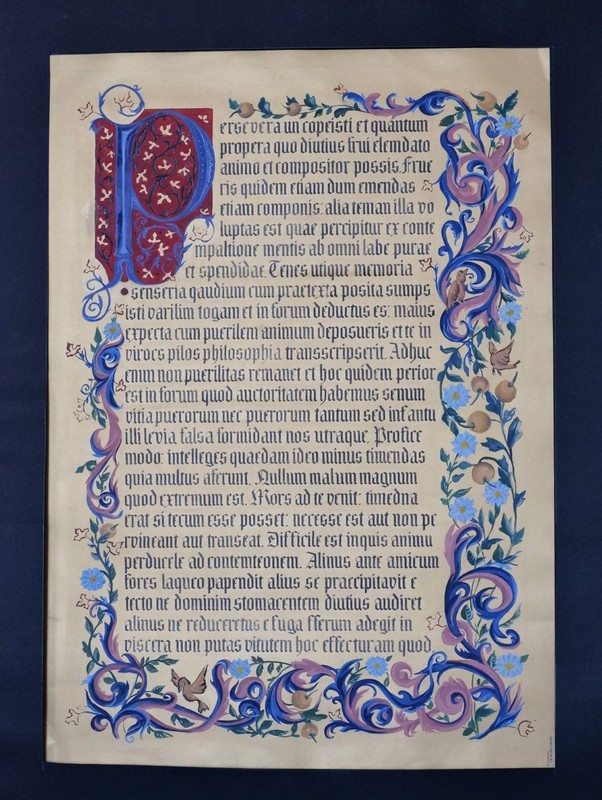 Persevera un copeisti et quantum
propera quo diutius frui elemdato
animo et compositor possis. Frue
ris quidem etiam dum emendas
etiam componis: alia teman illa vo
luptas est quae percipitur ex conte
mpaltione mentis ab omni labe purae
et spendidae. Tenes utique memoria
senseria qaudium cum praetexta posita sumps
isti varilim togam et in forum deductus es: maius
expecta cum puerilem animum deposueris et te in
virocs pilos philosophia transscripserit. Adhuc
enim non puerilitas remanet et hoc quidem perior
est in forum quod auctoritatem habemus senum
vitia puerorum nec puerorum tantum sed infantu
illi levia falsa formidant nos utraque. Profice
modo: intelleges quaedam ideo minus timendas
quia multus aferunt. Nullum malum magnum
quod extremum est. Mors ad te venit: timedna
erat si tecum esse posset: necesse est aut non pe
rvineant aut transeat. Difficile est inquis animu
perducele ad contemteonem. Alinus ante amicum
fores laqueo papendit alius se praecipitavit e
tecto ne dominim stomacentem diutius audiret
alinus ne reduceretus e fuga fferum adegit in
viscera non putas vitutem hoc effecturam quod.